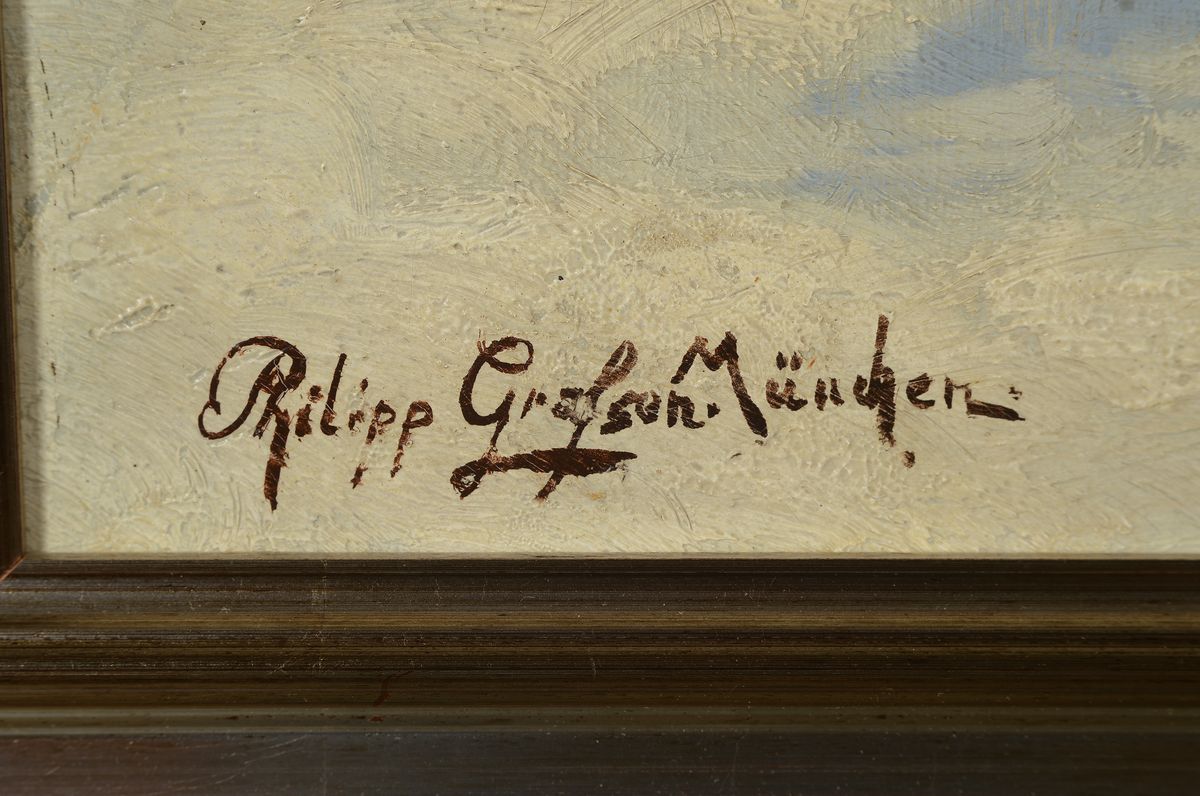 Philipp Grafson. München.